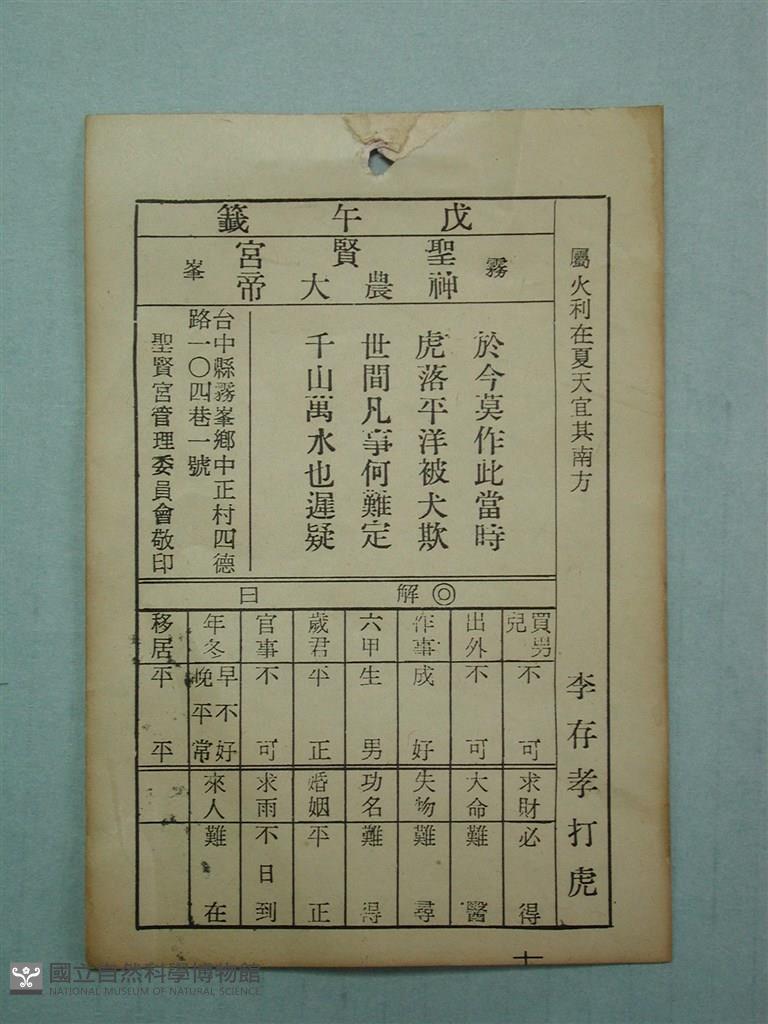 戊午籤
霧峯
聖賢宮
神農大帝
屬火利在夏天宜其南方
李存孝打虎
於今莫作此當時
虎落平洋被犬欺
世間凡事何難定
千山萬水也遲疑
台中縣霧峯鄉中正村四德
路一〇四巷一號
聖賢宮管理委員會敬印
◎解曰
買男兒 不可
出外 不可
作事 成好
六甲 生男
歲君 平正
官事 不可
年冬 早不好 晚平常
移居 平平
求財 必得
大命 難醫
失物 難尋
功名 難得
婚姻 平正
求雨 不日到
來人 難在
十
國立自然科學博物館
NATIONAL MUSEUM OF NATURAL SCIENCE